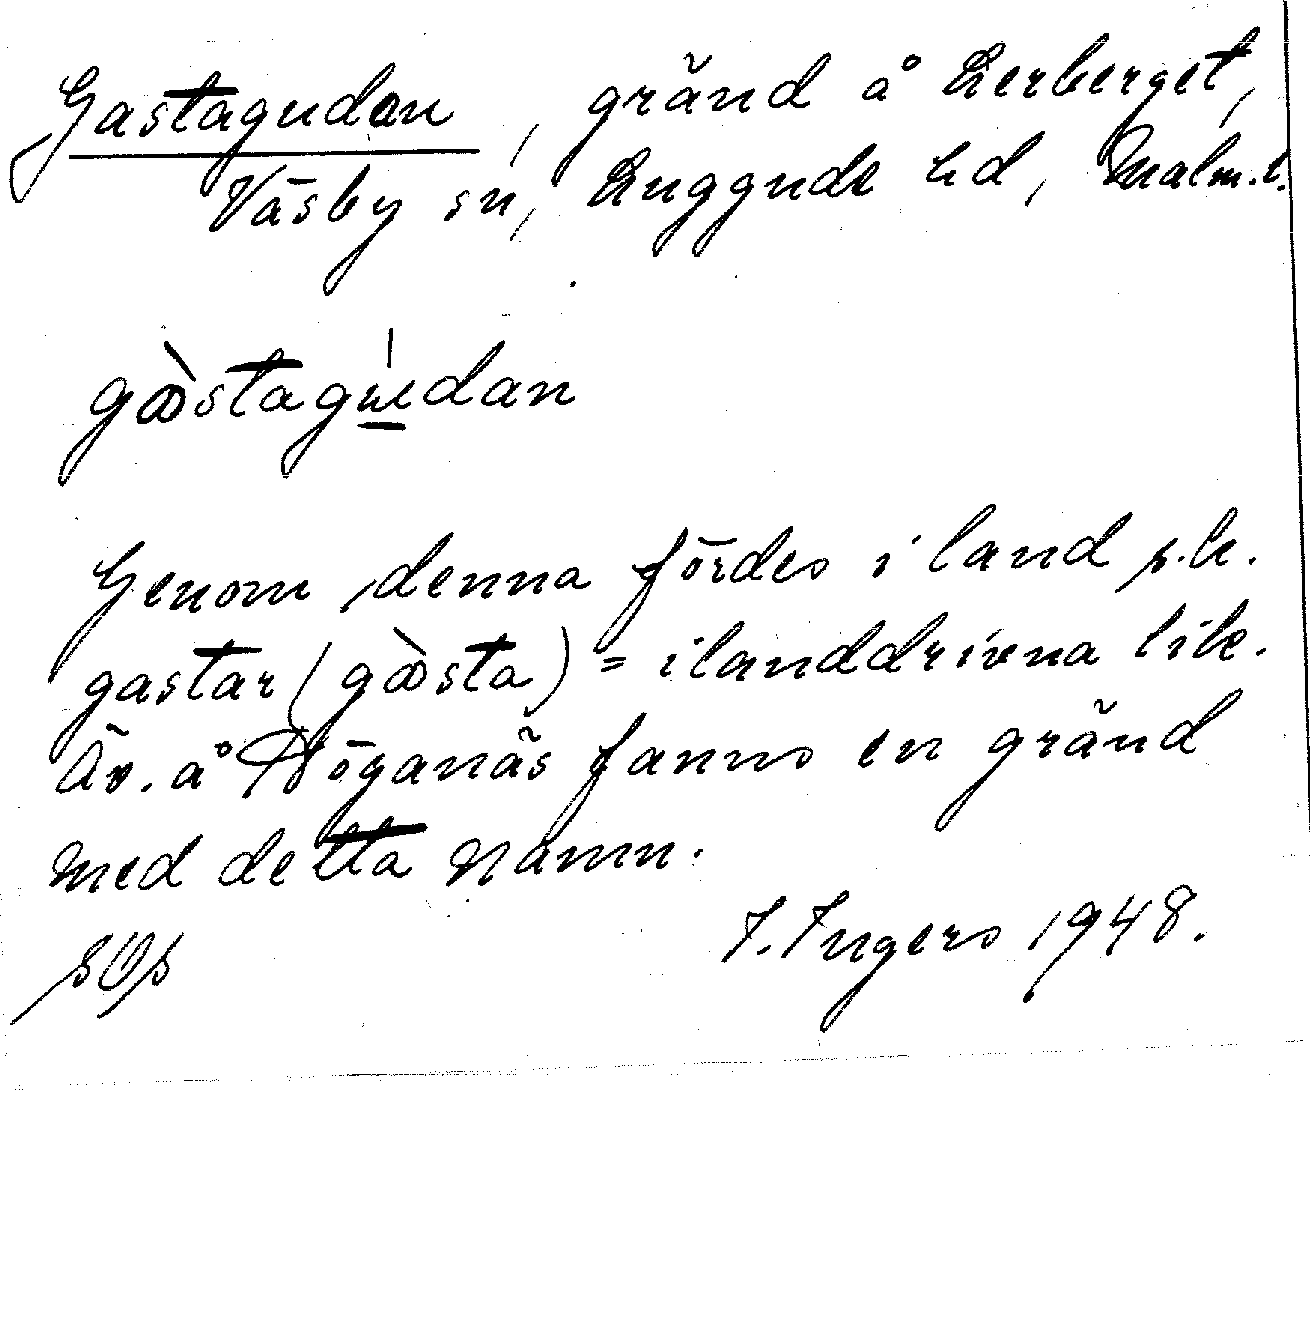 Gastagudan, gränd å Lerberget,
Väsby sn, Luggude hd, Malm.l.
Genom denna fördes i land s.k.
gastar ( ) = ilanddrivna lik.
Äv. å Höganäs fanns en gränd
med detta namn.
I. Ingers 1948.